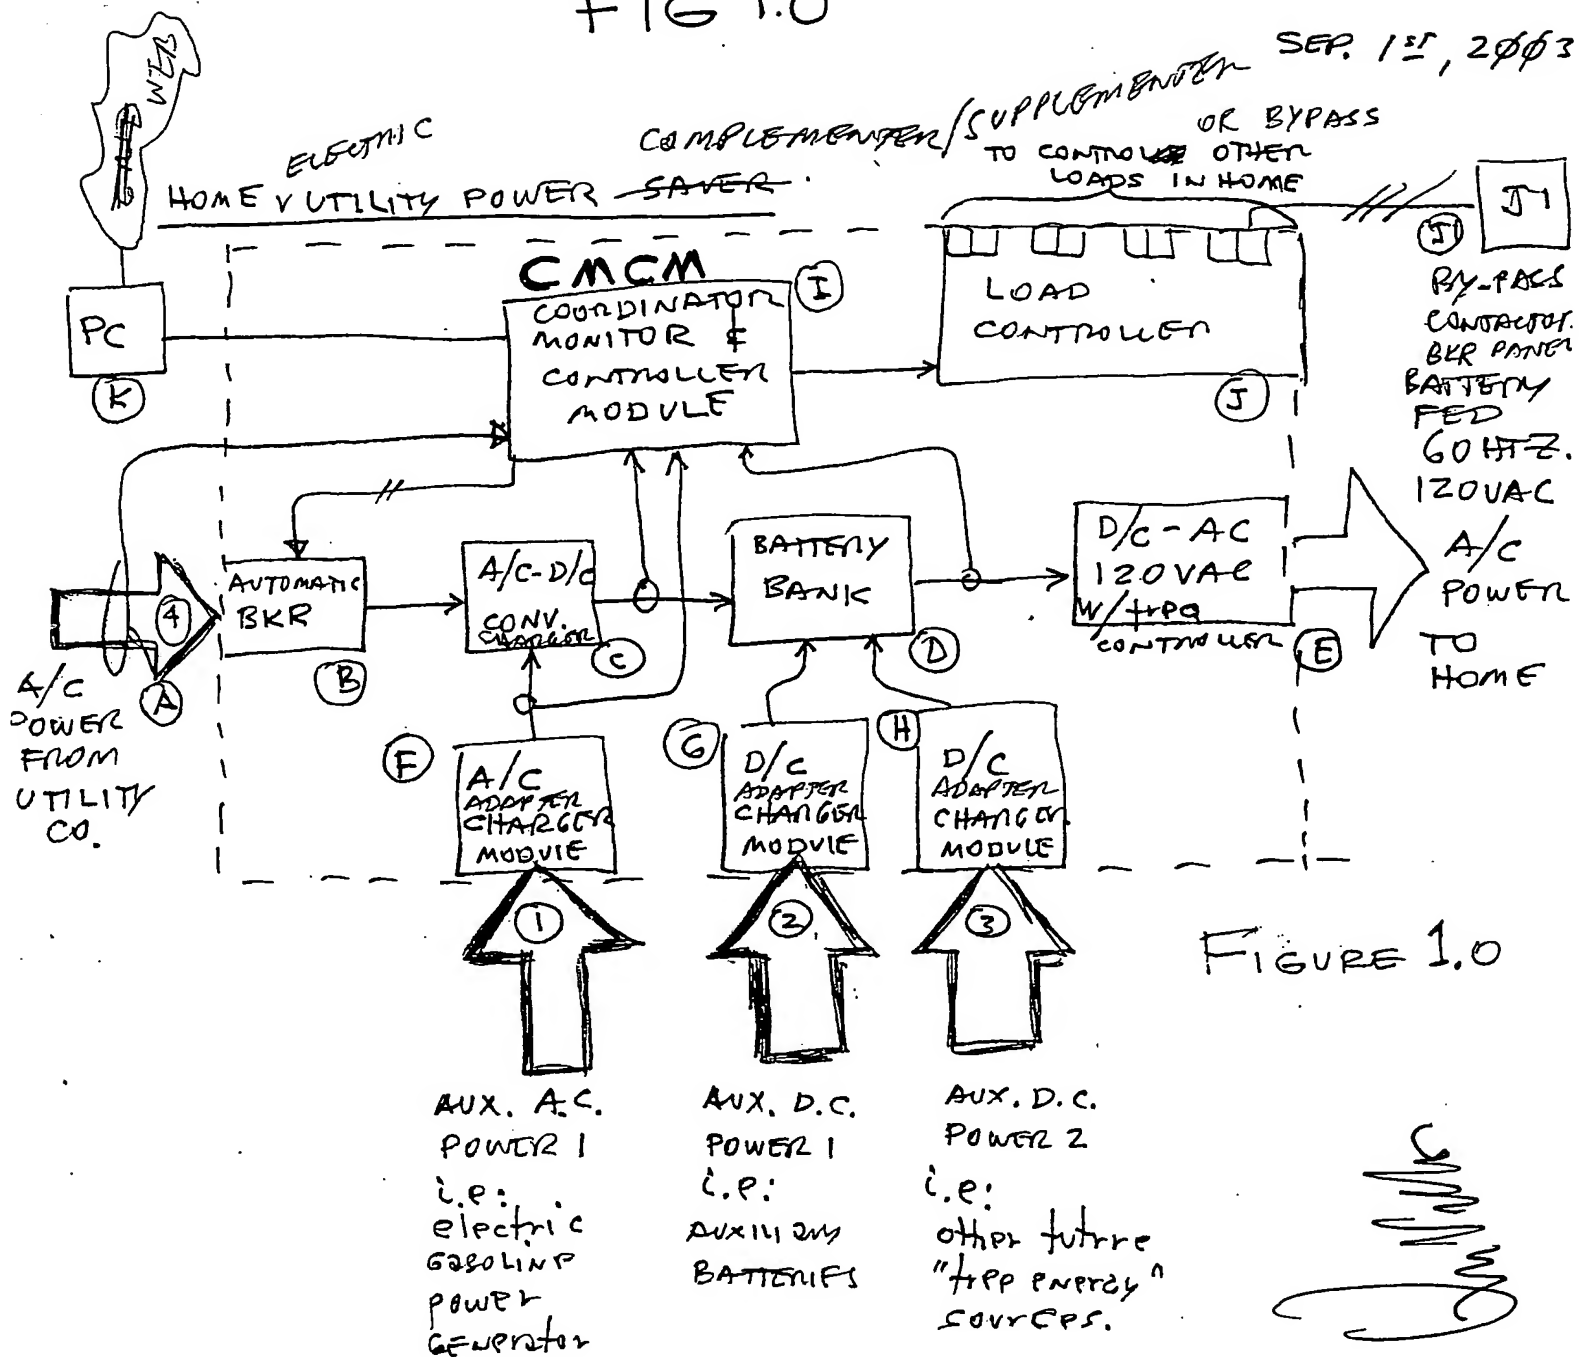 FIG 1.0
SEP. 1ST, 2003
ELECTRIC
COMPLEMENTER/SUPPLEMENTER
HOME UTILITY POWER SAVER
OR BYPASS
TO CONTROL OTHER
LOADS IN HOME
J1
J1
BY-PASS
CONTACTOR.
BKR PANEL
BATTERY
FED
60 HTZ.
120VAC
CMCM
COORDINATOR
MONITOR &
CONTROLLER
MODULE
I
LOAD
CONTROLLER
J
PC
K
A/C
POWER
FROM
UTILITY
CO.
4
A
AUTOMATIC
BKR
B
A/C-D/C
CONV.
CHARGER
C
BATTERY
BANK
D
D/C-AC
120VAC
W/freq
CONTROLLER
E
A/C
POWER
TO
HOME
F
A/C
ADAPTER
CHARGER
MODULE
G
D/C
ADAPTER
CHARGER
MODULE
H
D/C
ADAPTER
CHARGER
MODULE
1
2
3
FIGURE 1.0
AUX. A.C.
POWER 1
i.e:
electric
GASOLINE
power
GENERATOR
AUX. D.C.
POWER 1
i.e:
AUXILIARY
BATTERIES
AUX. D.C.
POWER 2
i.e:
other future
"free energy"
sources.